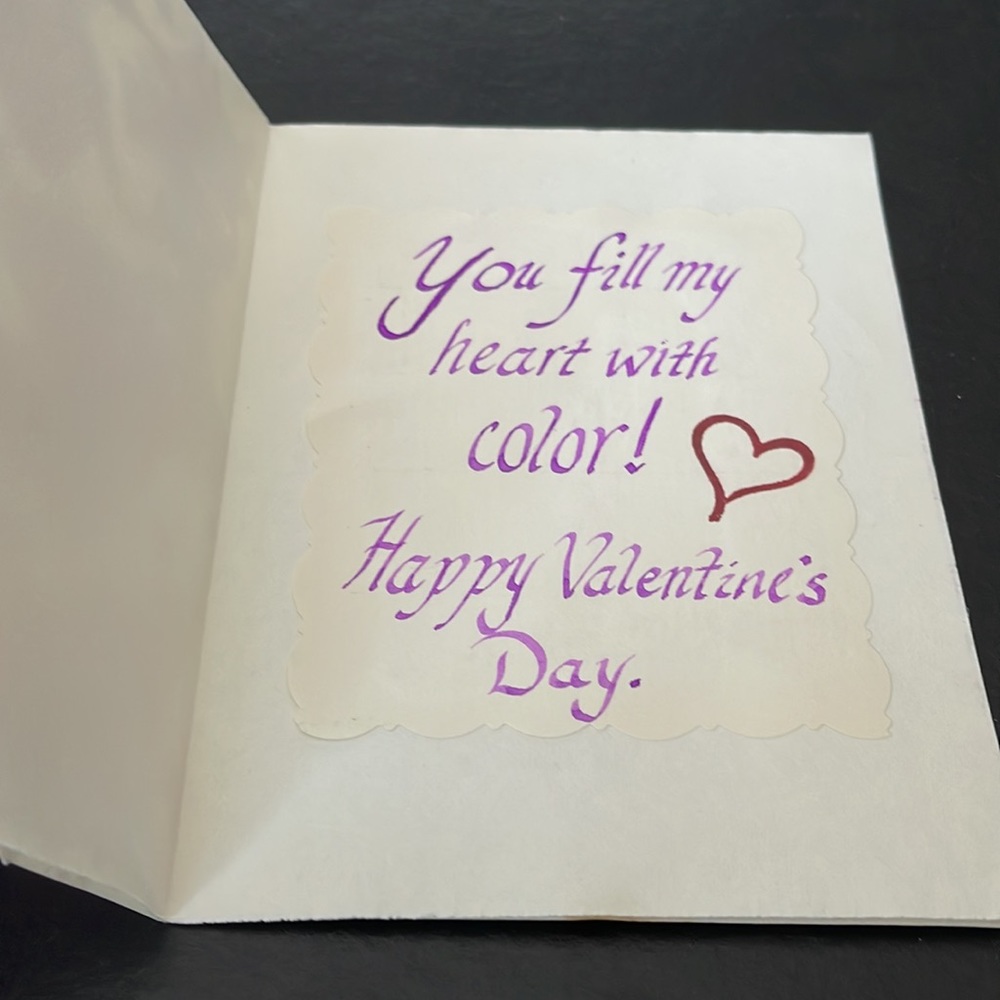 You fill my
heart with
color!
Happy Valentine's
Day.